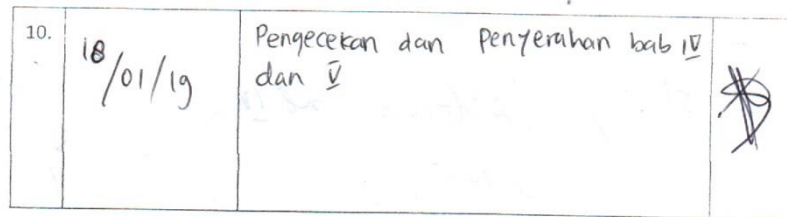 10.
18/01/19
Pengecekan dan Penyerahan bab IV
dan V